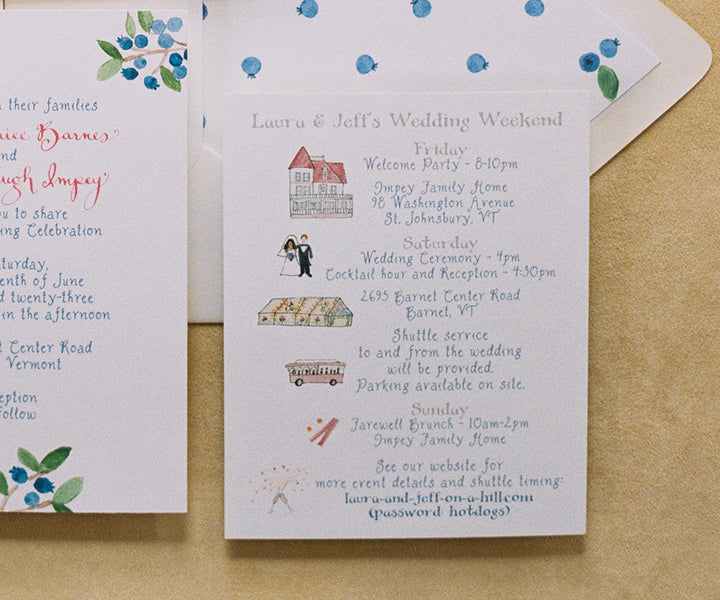 their families
Barnes
and
Impey
to share
Celebration
June
twenty-three
in the afternoon
Center Road
Vermont
Laura & Jeff's Wedding Weekend
Friday
Welcome Party - 8-10pm
Impey Family Home
98 Washington Avenue
St. Johnsbury, VT
Saturday
Wedding Ceremony - 4pm
Cocktail hour and Reception - 4:30pm
2695 Barnet Center Road
Barnet, VT
Shuttle service
to and from the wedding
will be provided.
Parking available on site.
Sunday
Farewell Brunch - 10am-2pm
Impey Family Home
See our website for
more event details and shuttle timing:
laura-and-jeff-on-a-hill.com
(password: hotdogs)